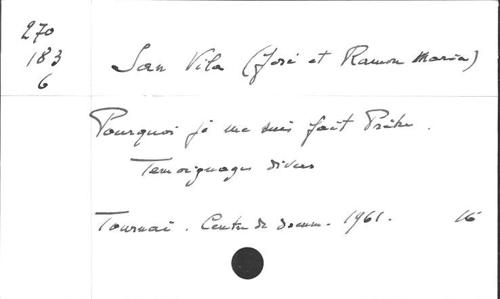 270
183
6
San Vila (José et Ramon Maria)
Pourquoi je me suis fait Prêtre.
Temoignages divers
Tournai. Centre de docum. 1961. 16